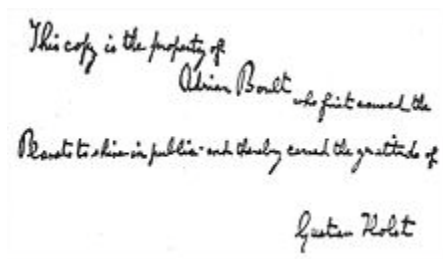 This copy is the property of
Adrian Boult who first caused the
Planets to shine in public and thereby earned the gratitude of
Gustav Holst